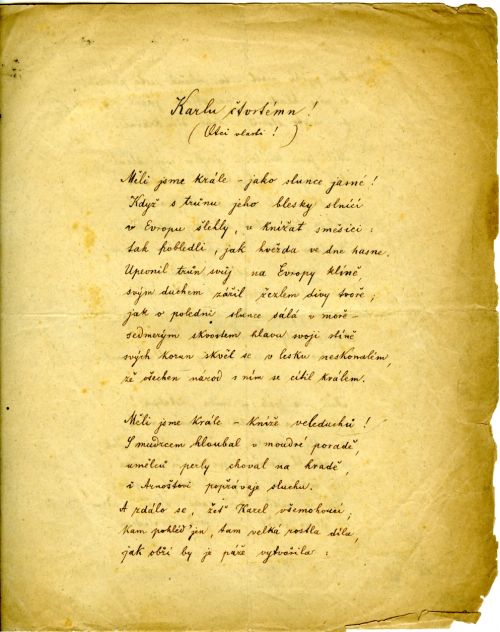 Karlu čtvrtému!
(Otci vlasti!)
Měli jsme krále – jako slunce jasné!
Když s trůnu jeho blesky slnící
v Evropu šlehly, v knížat směsici:
tak pobledli, jak hvězda ve dne hasne.
Upevnil trůn svůj na Evropy klíně
svým duchem zářil žezlem divy tvoře;
jak o poledni slunce sálá v moře –
sedmerým skvostem hlavu svoji stíně
svých korun skvěl se v lesku neskonalém,
že všechen národ s ním se cítil králem.
Měli jsme krále – kníže veleduchů!
S mudrcem hloubal v moudré poradě,
umělců perly choval na hradě,
i Arnoštovi popřávaje sluchu.
A zdálo se, žeť Karel všemohoucí;
kam pohléd' jen, tam velká rostla díla,
jak obří by je páže vytvořila: